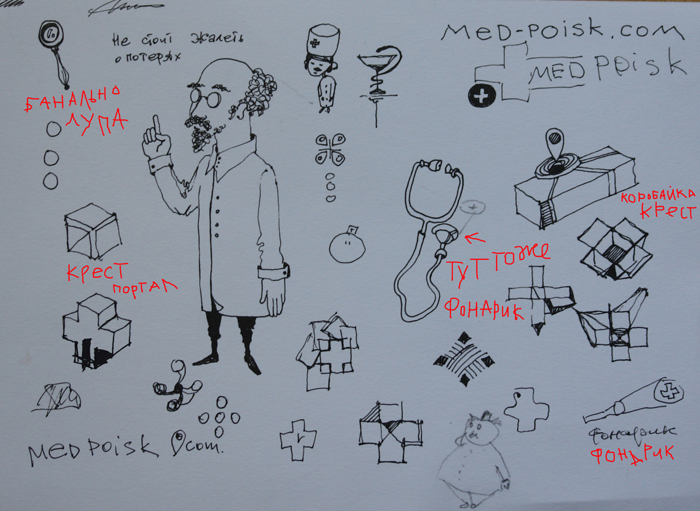 Не стоит жалеть
о потерях
MED-POISK.COM
MED POISK
БАНАЛЬНО
ЛУПА
КОРОБАЙКА
КРЕСТ
КРЕСТ
ПОРТАЛ
ТУТ ТОЖЕ
ФОНАРИК
MED POISK com.
фонарик
ФОНДРИК